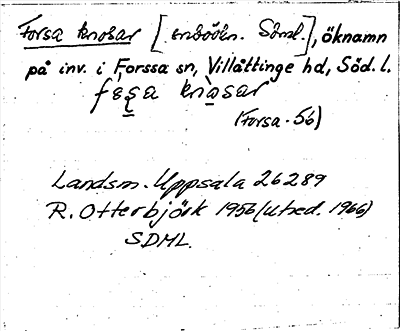 Forsa knosar [inböön. Sdml.], öknamn
på inv. i Forssa sn, Villåttinge hd, Söd. l.
fọṣa knàsar
(Forsa - 56)
Landsm. Uppsala 26289
R. Otterbjörk 1956 (utred. 1966)
SDML.